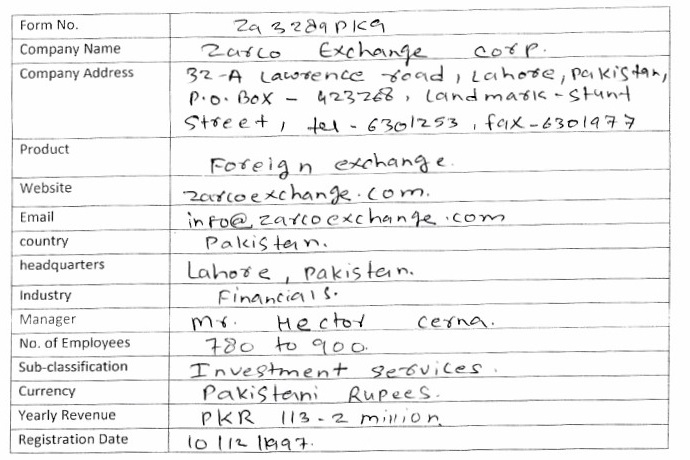 Form No. Za3289PK9
Company Name Zarco Exchange corp.
Company Address 32-A Lawrence road, Lahore, Pakistan,
P.O. Box - 423268, Landmark - Stunt
Street, tel - 6301253, fax - 6301977
Product Foreign exchange.
Website zarcoexchange.com.
Email info@zarcoexchange.com
country Pakistan.
headquarters Lahore, Pakistan.
Industry Financials.
Manager Mr. Hector Cerna.
No. of Employees 780 to 900.
Sub-classification Investment services.
Currency Pakistani Rupees.
Yearly Revenue PKR 113.2 million
Registration Date 10/12/1997.